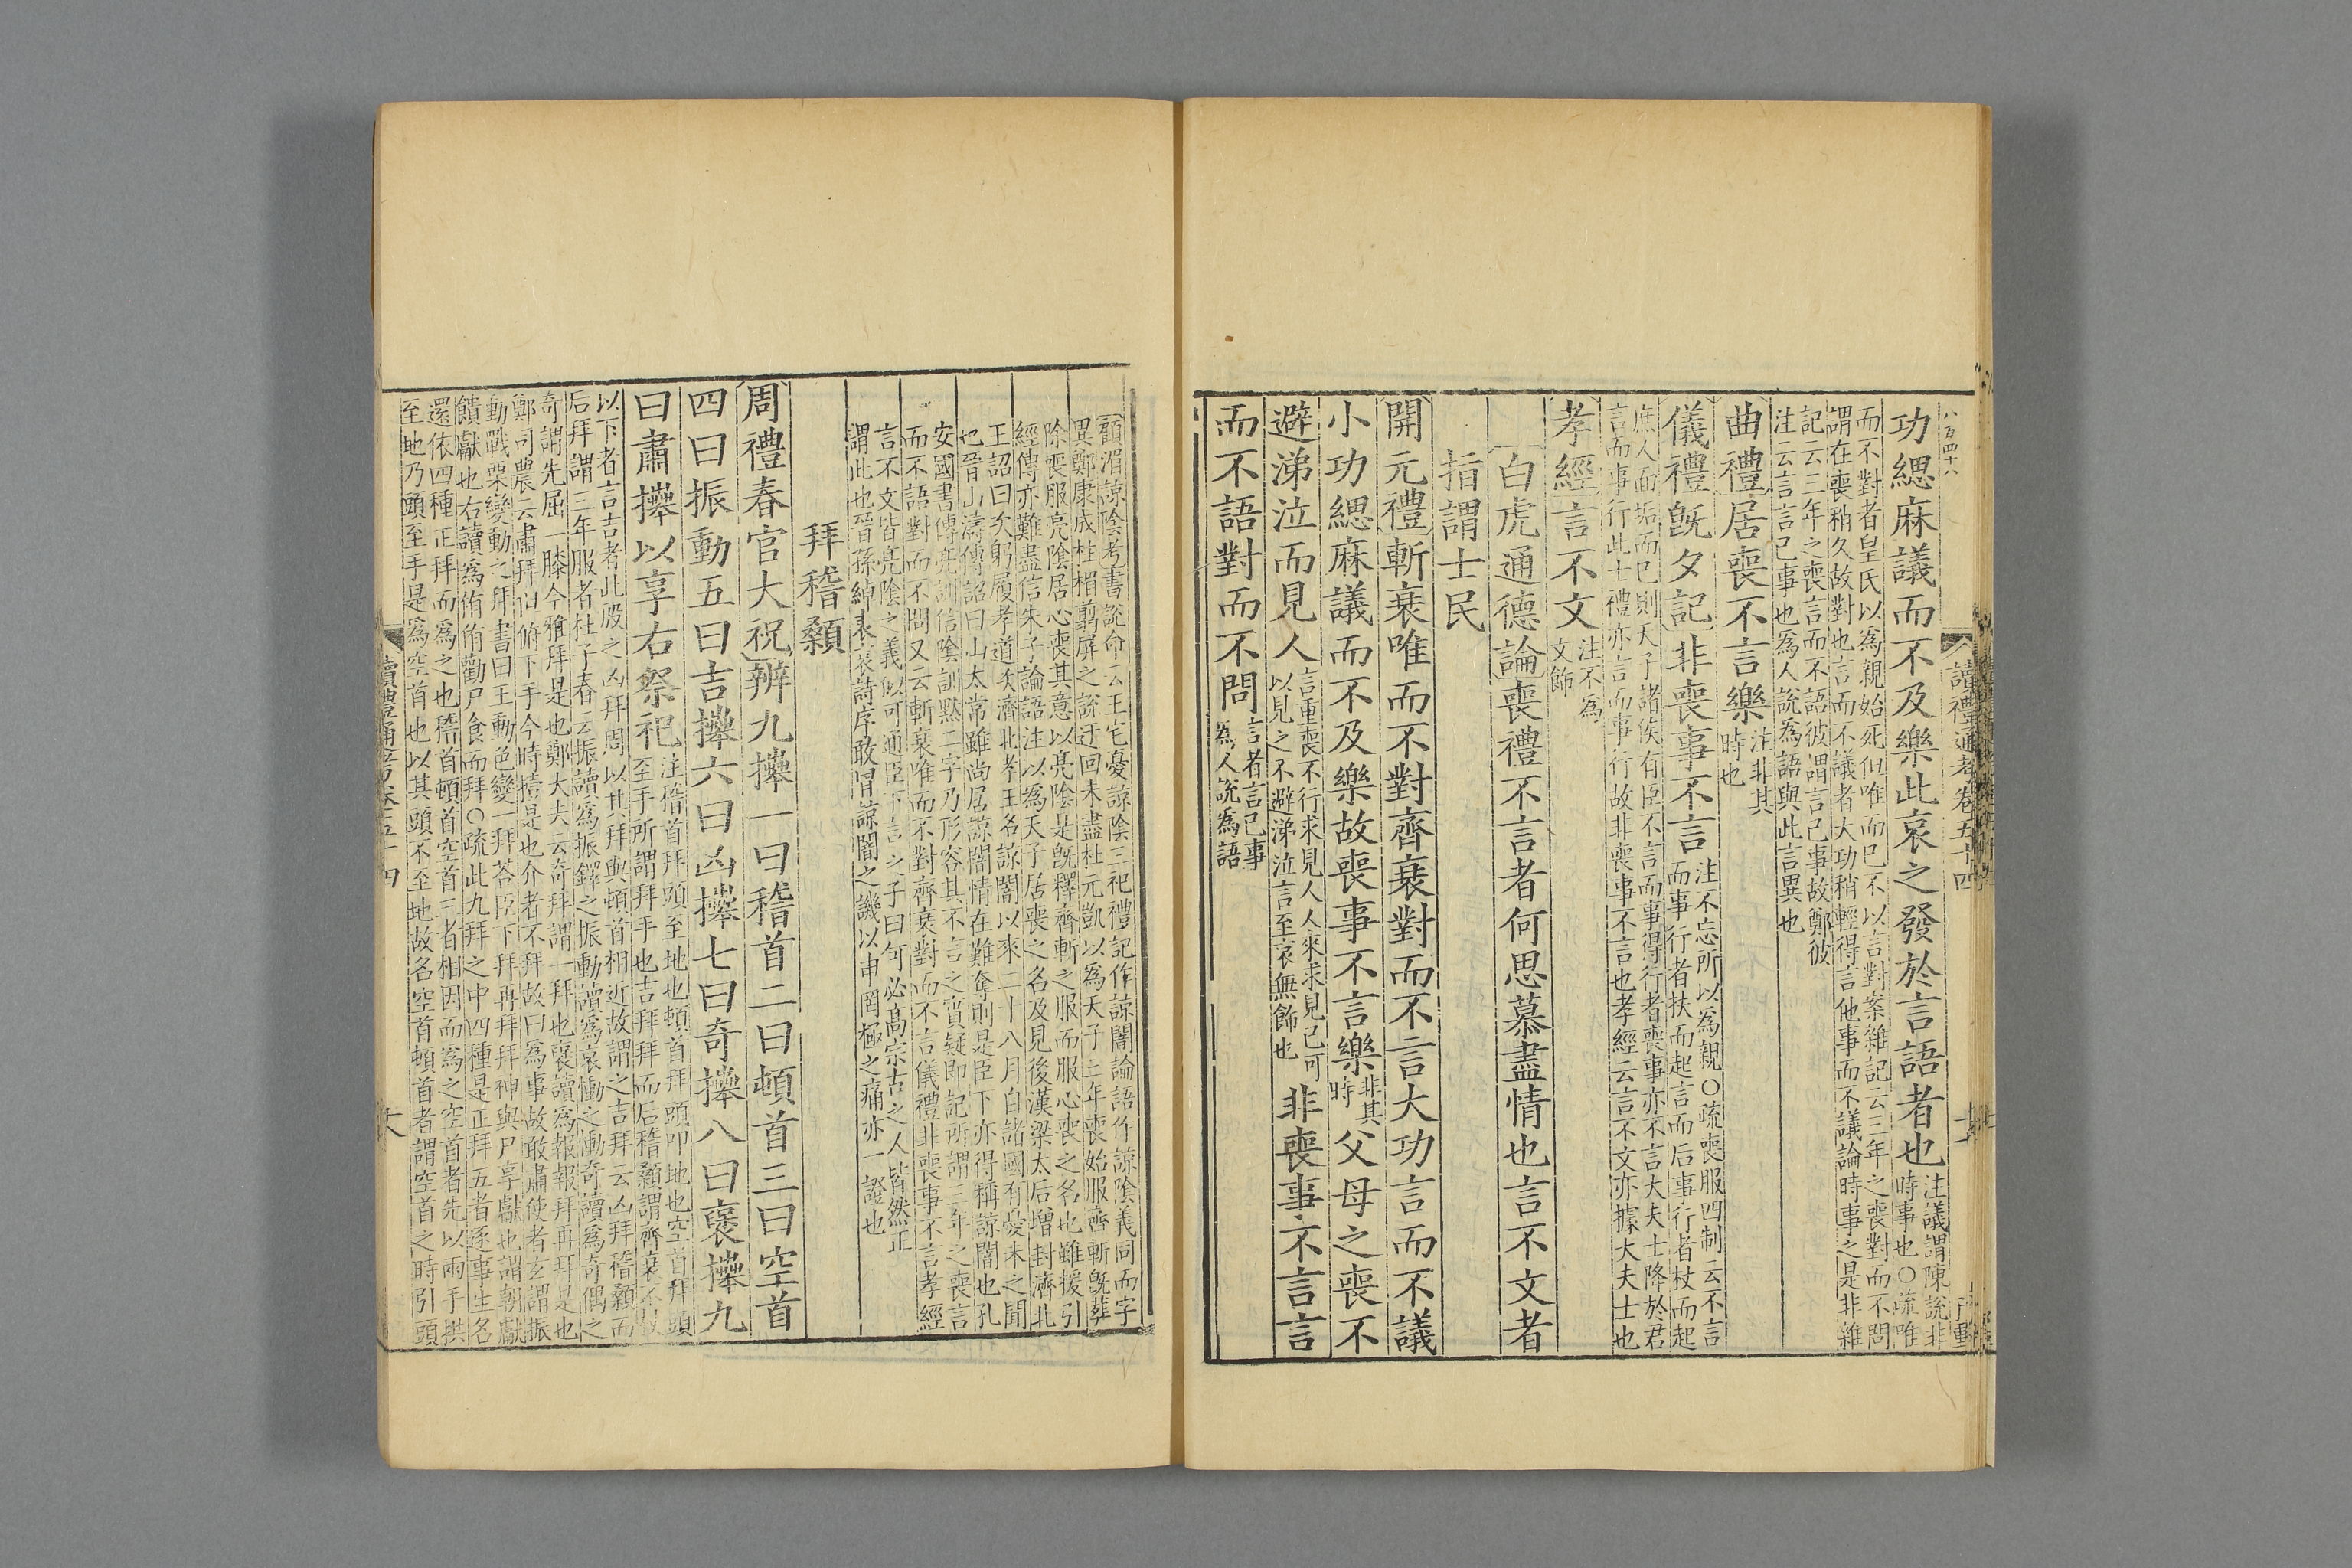 八百四十八
讀禮通考卷五十四
功緦麻議而不及樂此哀之發於言語者也
注議謂陳說非
時事也○疏唯
而不對者皇氏以為親始死但唯而已不以言對案雜記云三年之喪對而不問
謂在喪稍久故對也言而不議者大功稍輕得言他事而不議論時事之是非雜
記云三年之喪言而不語彼謂言己事故鄭彼
注云言言己事也為人說為語與此言異也
曲禮居喪不言樂
注非其
時也
儀禮旣夕記非喪事不言
注不忘所以為親○疏喪服四制云不言
而事行者扶而起言而后事行者杖而起
庶人面垢而已則天子諸侯有臣不言而事得行者喪事亦不言大夫士降於君
言而事行此士禮亦言而事行故非喪事不言也孝經云言不文亦據大夫士也
孝經言不文
注不為
文飾
白虎通德論喪禮不言者何思慕盡情也言不文者
指謂士民
開元禮斬衰唯而不對齊衰對而不言大功言而不議
小功緦麻議而不及樂故喪事不言樂
非其
時
父母之喪不
避涕泣而見人
言重喪不行求見人人來求見己可
以見之不避涕泣言至哀無飾也
非喪事不言言
而不語對而不問
言者言己事
為人說為語
顧湄諒陰考書說命云王宅憂諒陰三祀禮記作諒闇論語作諒陰義同而字
異鄭康成柱楣剪屏之說迂回未盡杜元凱以為天子三年喪始服齊斬旣葬
除喪服亮陰居心喪其意以亮陰是旣釋齊斬之服而服心喪之名也雖援引
經傳亦難盡信朱子論語注以為天子居喪之名及見後漢梁太后增封濟北
王詔曰次躬履孝道次濟北孝王名諒闇以來二十八月自諸國有憂未之聞
也晉山濤傳詔曰山太常雖尚居諒闇情在難奪則是臣下亦得稱諒闇也孔
安國書傳亮訓信陰訓黙二字乃形容其不言之實疑即記所謂三年之喪言
而不語對而不問又云斬衰唯而不對齊衰對而不言儀禮非喪事不言孝經
言不文皆亮陰之義似可通臣下言之子曰何必高宗古之人皆然正
謂此也晉孫綽表哀詩序敢冒諒闇之譏以申罔極之痛亦一證也
拜稽顙
周禮春官大祝辨九㩧一曰稽首二曰頓首三曰空首
四曰振動五曰吉㩧六曰凶㩧七曰奇㩧八曰褒㩧九
曰肅㩧以享右祭祀
注稽首拜頭至地也頓首拜頭叩地也空首拜頭
至手所謂拜手也吉拜拜而后稽顙謂齊衰不杖
以下者言吉者此殷之凶拜周以其拜與頓首相近故謂之吉拜云凶拜稽顙而
后拜謂三年服者杜子春云振讀為振鐸之振動讀為哀慟之慟奇讀為奇偶之
奇謂先屈一膝今雅拜是也鄭大夫云奇拜謂一拜也褒讀為報報拜再拜是也
鄭司農云肅拜但俯下手今時撎是也介者不拜故曰為事故敢肅使者玄謂振
動戰栗變動之拜書曰王動色變一拜荅臣下拜再拜拜神與尸享獻也謂朝獻
饋獻也右讀為侑侑勸尸食而拜○疏此九拜之中四種是正拜五者逐事生名
還依四種正拜而為之也稽首頓首空首三者相因而為之空首者先以兩手拱
至地乃頭至手是為空首也以其頭不至地故名空首頓首者謂空首之時引頭
讀禮通考卷五十四